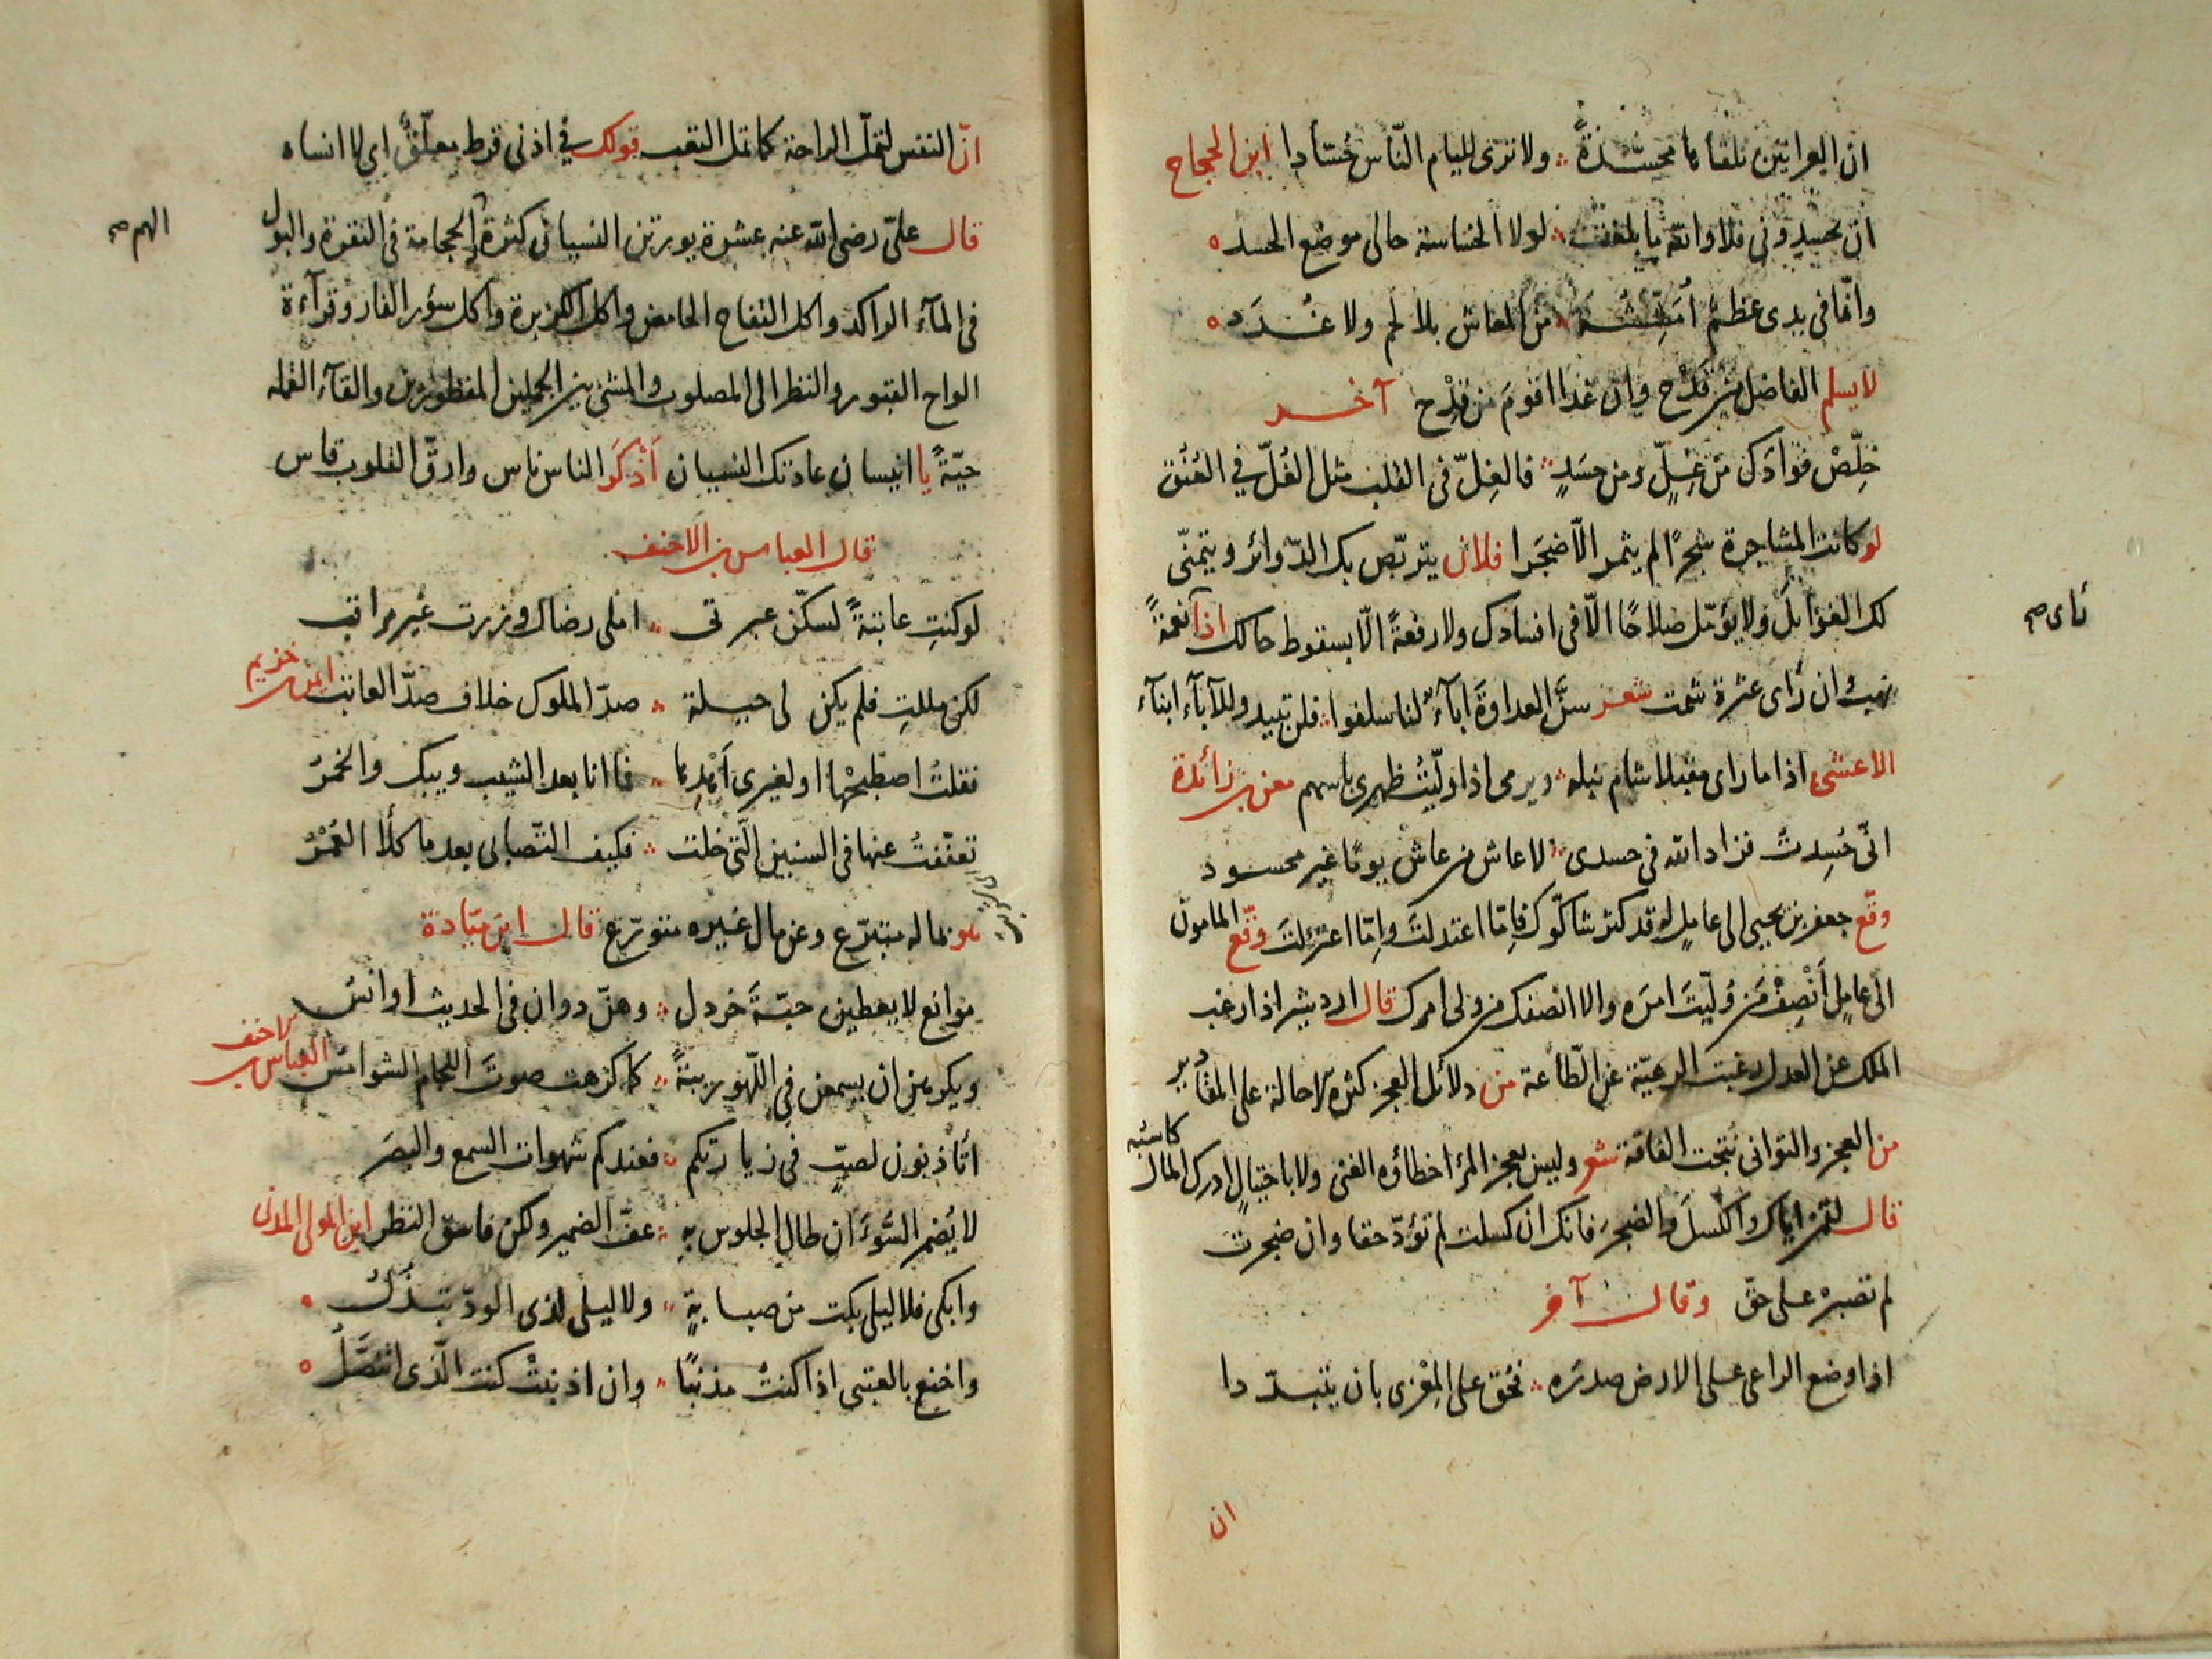 ان العرانين تلقاها محسّدةً ولا ترى للئام النّاس حُسّادا ابن الحجاج
ان تحسدوني فلا والله ما بلغت لولا الخساسة حالى موضع الحسد
وانّما فى يدى عظمٌ أمشّشه من المعاش بلا لحم ولا غُدَد
لا يسلم الفاضل من قَدْح وان غدا اقومَ من قِدْح آخــر
خلّصْ فؤادك من غِلٍّ ومن حسَدٍ فالغِلّ فى القلب مثل الغُلّ في العُنُق
لو كانت المشاجرة شجرًا لم يثمر الّا ضجَرا فلان يتربّص بك الدّوائر ويتمنّى
لك الغوائلَ ولا يؤمّل صلاحًا الّا فى افسادك ولا رفعةً الّا بسقوط حالك اذا نعمةً
نأى صح
بهت وان رأى عثرة شمت شعر سنَّ العداوةَ اباءٌ لنا سلفوا فلن تبيد وللآبآء ابنآء
الاعشى اذا ما راى مقبلا شام نبله ويرمى اذا ولّيتُ ظهرى باسهم معن بن زائدة
انّى حُسِدتُ فزاد الله فى حسدى لا عاش من عاش يومًا غير محسود
وقّع جعفر بن يحيى الى عاملٍ له قد كثر شاكوك فامّا اعتدلتَ وامّا اعتزلتَ وقّع المامون
الى عاملٍ أنصِفْ مَن وُلّيتَ امرَه والا انصفك من ولى امرك قال اردشير اذا رغب
الملك عن العدل رغبت الرعيّة عن الطّاعة من دلائل العجز كثرة الاحالة على المقادير
من العجز والتوانى نُتجت الفاقة شعر وليس بعجز المرء اخطاؤه الغنى ولا باحتيالٍ ادرك المال كاسبُه
قال لقمن اياك والكسلَ والضجرَ فانك ان كسلت لم تؤدّ حقا وان ضجرت
لم تصبر على حقّ وقال آخر
اذا وضع الراعى على الارض صدرَه فحُقّ على المِعْزى بان يتبدّدا
ان
انّ النفس لتملّ الراحة كما تمل التعب قولك في اذنى قرط معلّقٌ اى لا انساه
قال علىّ رضى الله عنه عشرة يورثن النسيان كثرة الحجامة فى النقرة والبول
الهم صح
فى المآء الراكد واكل التفاح الحامض واكل الكزبرة واكل سؤر الفار وقرآءة
الواح القبور والنظر الى المصلوب والمشى بين الجملين المقطورين والقآء القمله
حيّةً يا انسان عادتك النسيان أذكرَ الناس ناس وارقّ القلوب قاس
قال العباس بن الاحنف
لو كنتِ عاتبةً لسكّن عبرتى املى رضاك وزرت غير مراقب
لكن مللتِ فلم يكن لى حيلة صدّ الملوك خلاف صدّ العاتب ايمن بن خزيم
فقلتُ اصطبحْها او لغيرى أهْدِها فما انا بعد الشيب ويبك والخمرُ
تعفّفتُ عنها فى السنين الّتى خلت فكيف التّصابى بعد ما كلأ العُمْرُ
هو بماله متبرّع وعن مال غيره متورّع قال ابن ميّادة
موانع لا يعطين حبّةَ خردل وهنّ دوان فى الحديث اوانسُ
ويكرهن ان يسمعن في اللّهو ريبةً كما كرهت صوتَ اللجام الشوامسُ العباس بن الاحنف
أتأذنون لصبٍّ فى زيارتكم فعندكم شهوات السمع والبصَر
لا يُضمر السُّوءَ ان طال الجلوس به عفّ الضمير ولكن فاسق النظر ابن المولى المدنى
وابكى فلا ليلى بكت من صبابةٍ ولا ليلى لذى الودّ تبذُلُ
واخنع بالعتبى اذا كنتُ مذنبًا وان اذنبتْ كنت الّذى اتنصّلُ